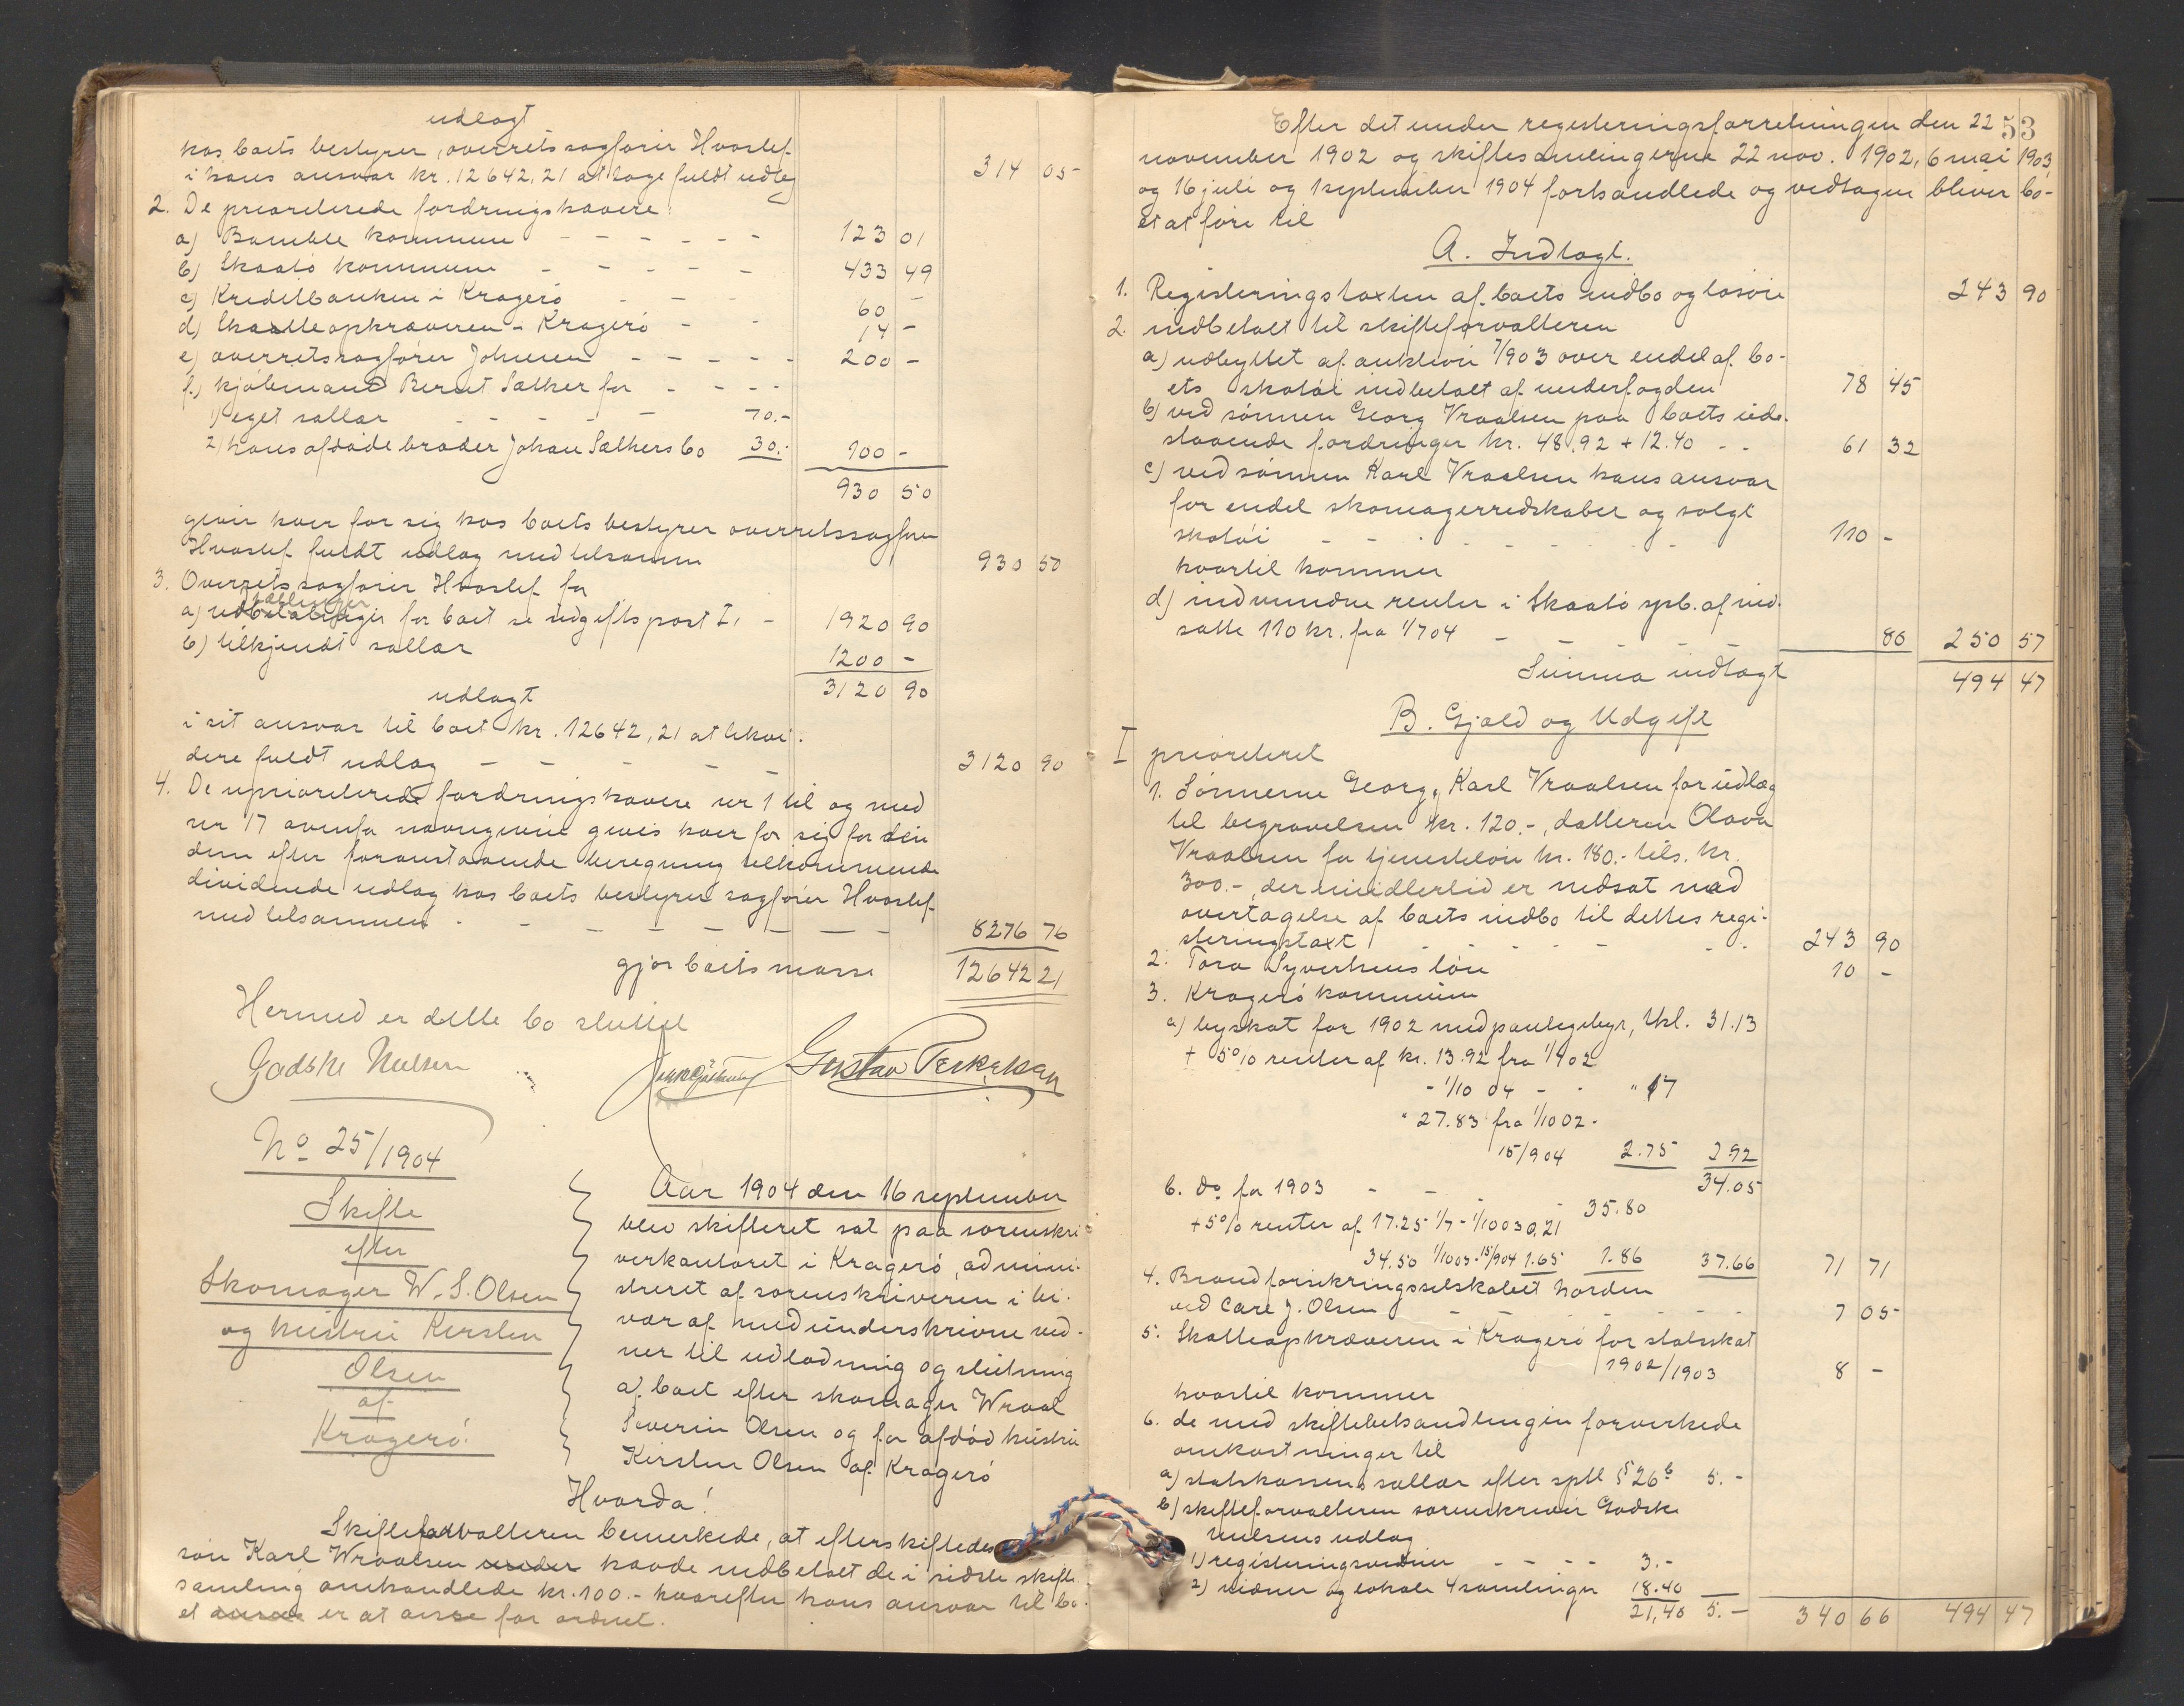 udlagt
hos boets bestyrer, overretssagfører Hvoslef
i hans ansvar kr. 12642,21 at tage fuldt udlæg 314 05
2. De prioriterede fordringshavere:
a) Bamble kommune - - - - - - 123 01
b) Skaatø kommune - - - - - 433 49
c) Kreditbanken i Kragerø - - - 60 -
d) Skatteopkræveren - Kragerø - - 14 -
e) overretssagfører Johnsen - - - - - 200 -
f.) kjøbmand Bernt Sælher for - - - -
1) eget sallar - - - - 70.-
2) hans afdøde broder Johan Sælhers bo 30.- 100 -
930 50
giver hver for sig hos boets bestyrer overretssagfører
Hvoslef fuldt udlæg med tilsammen 930 50
3. Overretssagfører Hvoslef for
a) udbetalinger for boet se udgiftspost I, - 1920 90
b) tilkjendt sallar 1200 -
3120 90
udlagt
i sit ansvar til boet kr. 12642,21 at likvi-
dere fuldt udlæg - - - - - - 3120 90
4. De upriorterede fordringshavere nr 1 til og med
nr 17 ovenfor navngivne gives hver for sig for den
dem efter foranstaaende beregning tilkommende
dividende udlæg hos boets bestyrer sagfører Hvoslef
med tilsammen - - - - - - - 8276 76
gjør boets masse 12642 21
Hermed er dette bo sluttet
Godske Nielsen Gustav Terkelsen
No 25/1904
Skifte
efter
Skomager W. S. Olsen
og hustru Kirsten
Olsen
af
Kragerø.
Aar 1904 den 16 september
blev skifteret sat paa sorenskri-
verkontoret i Kragerø, admini-
streret af sorenskriveren i bi-
vær af medunderskrivne vid-
ner til udlodning og slutning
af boet efter skomager Wraal
Severin Olsen og før afdød hustru
Kirsten Olsen af Kragerø
Hvorda!
Skifteforvalteren bemerkede, at efterskiftedes
søn Karl Wraalsen havde indbetalt de i sidste skifte-
samling omhandlede kr. 100.- hvorefter hans ansvar til bo-
et er at anse for ordnet.
53
Efter det under registeringsforretningen den 22
november 1902 og skiftesamlingerne 22 nov. 1902, 6 mai 1903
og 16 juli og 1 september 1904 forhandlede og vedtagen bliver bo-
et at føre til
A. Indtægt.
1. Registeringstaxten af boets indbo og løsøre 243 90
2. indbetalt til skifteforvalteren
a) udbyttet af auktion 7/903 over endel af bo-
ets skotøi indbetalt af underfogden 78 45
b) ved sønnen Georg Vraalsen paa boets ude-
staaende fordringer kr. 48,92 + 12.40 - - 61 32
c) ved sønnen Karl Vraalsen hans ansvar
for endel skomagerredskaber og solgt
skotøi - - - - - - - - 110 -
hvortil kommer
d) indvundne renter i Skaatø spb. af ind-
satte 110 kr. fra 1/7 04 - - - - 80 250 57
Summa indtægt 494 47
B. Gjæld og Udgift
I prioriteret
1. Sønnerne Georg & Karl Vraalsen for udlæg
til begravelsen kr. 120.-, datteren Olava
Vraalsen for tjenesteløn kr. 180.- tils. kr.
300.-, der imidlertid er nedsat mod
overtagelse af boets indbo til dettes regi-
steringstaxt - - - - - - - 243 90
2. Tora Syvertsens løn 10 -
3. Kragerø kommune
a) byskat for 1902 med paalægsgebyr, Ukl. 31.13
+ 5% renter af kr. 13.92 fra 1/4 02
- 1/10 04 - - " 17
" 27.83 fra 1/10 02 -
15/904 2.75 2 92
34.05
b. Do for 1903 - - - - 35.80
+ 5% renter af 17.25 1/7 - 1/10 03 0,21
34.50 1/1003 - 15/904 1.65 1.86 37.66 71 71
4. Brandforsikringsselskabet Norden
ved Carl J. Olsen - - - - - - 7 05
5. Skatteopkræveren i Kragerø for statsskat
1902/1903 8 -
hvortil kommer
6. de med skiftebehandlingen forvirkede
omkostninger til
a) statskassens sallar efter sptl § 26 b 5.-
b) skifteforvalteren sorenskriver Godske
Nielsens udlæg
1) registeringsvidner - - - - 3.-
2) vidner og lokale 4 samlinger 18.40
21,40 5.- 340 66 494 47